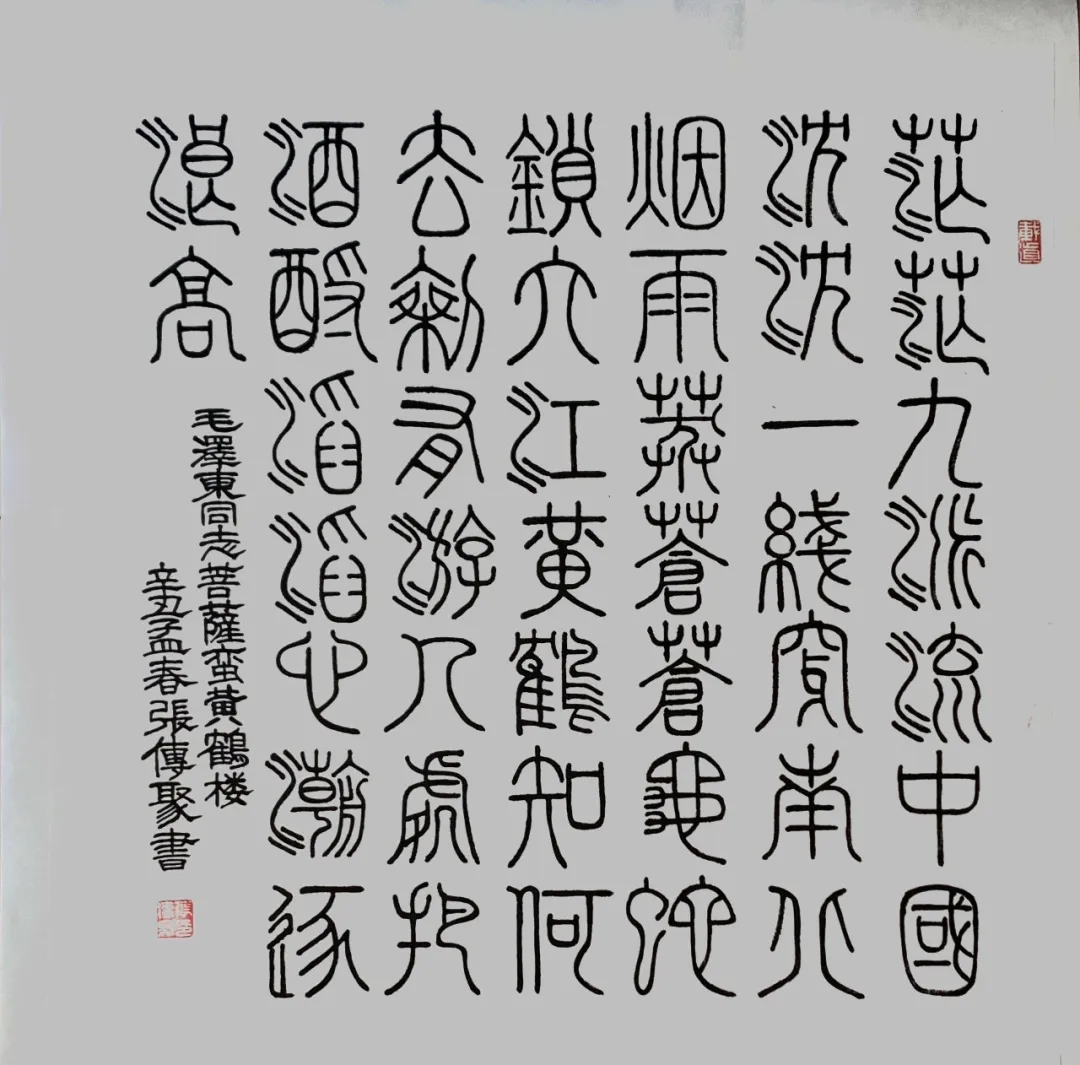 茫茫九派流中國
沈沈一綫穿南北
烟雨莽蒼蒼龜蛇
鎖大江黃鶴知何
去剩有游人處把
酒酹滔滔心潮逐
浪高
毛澤東同志菩薩蛮黃鶴楼
辛丑孟春張傳聚書